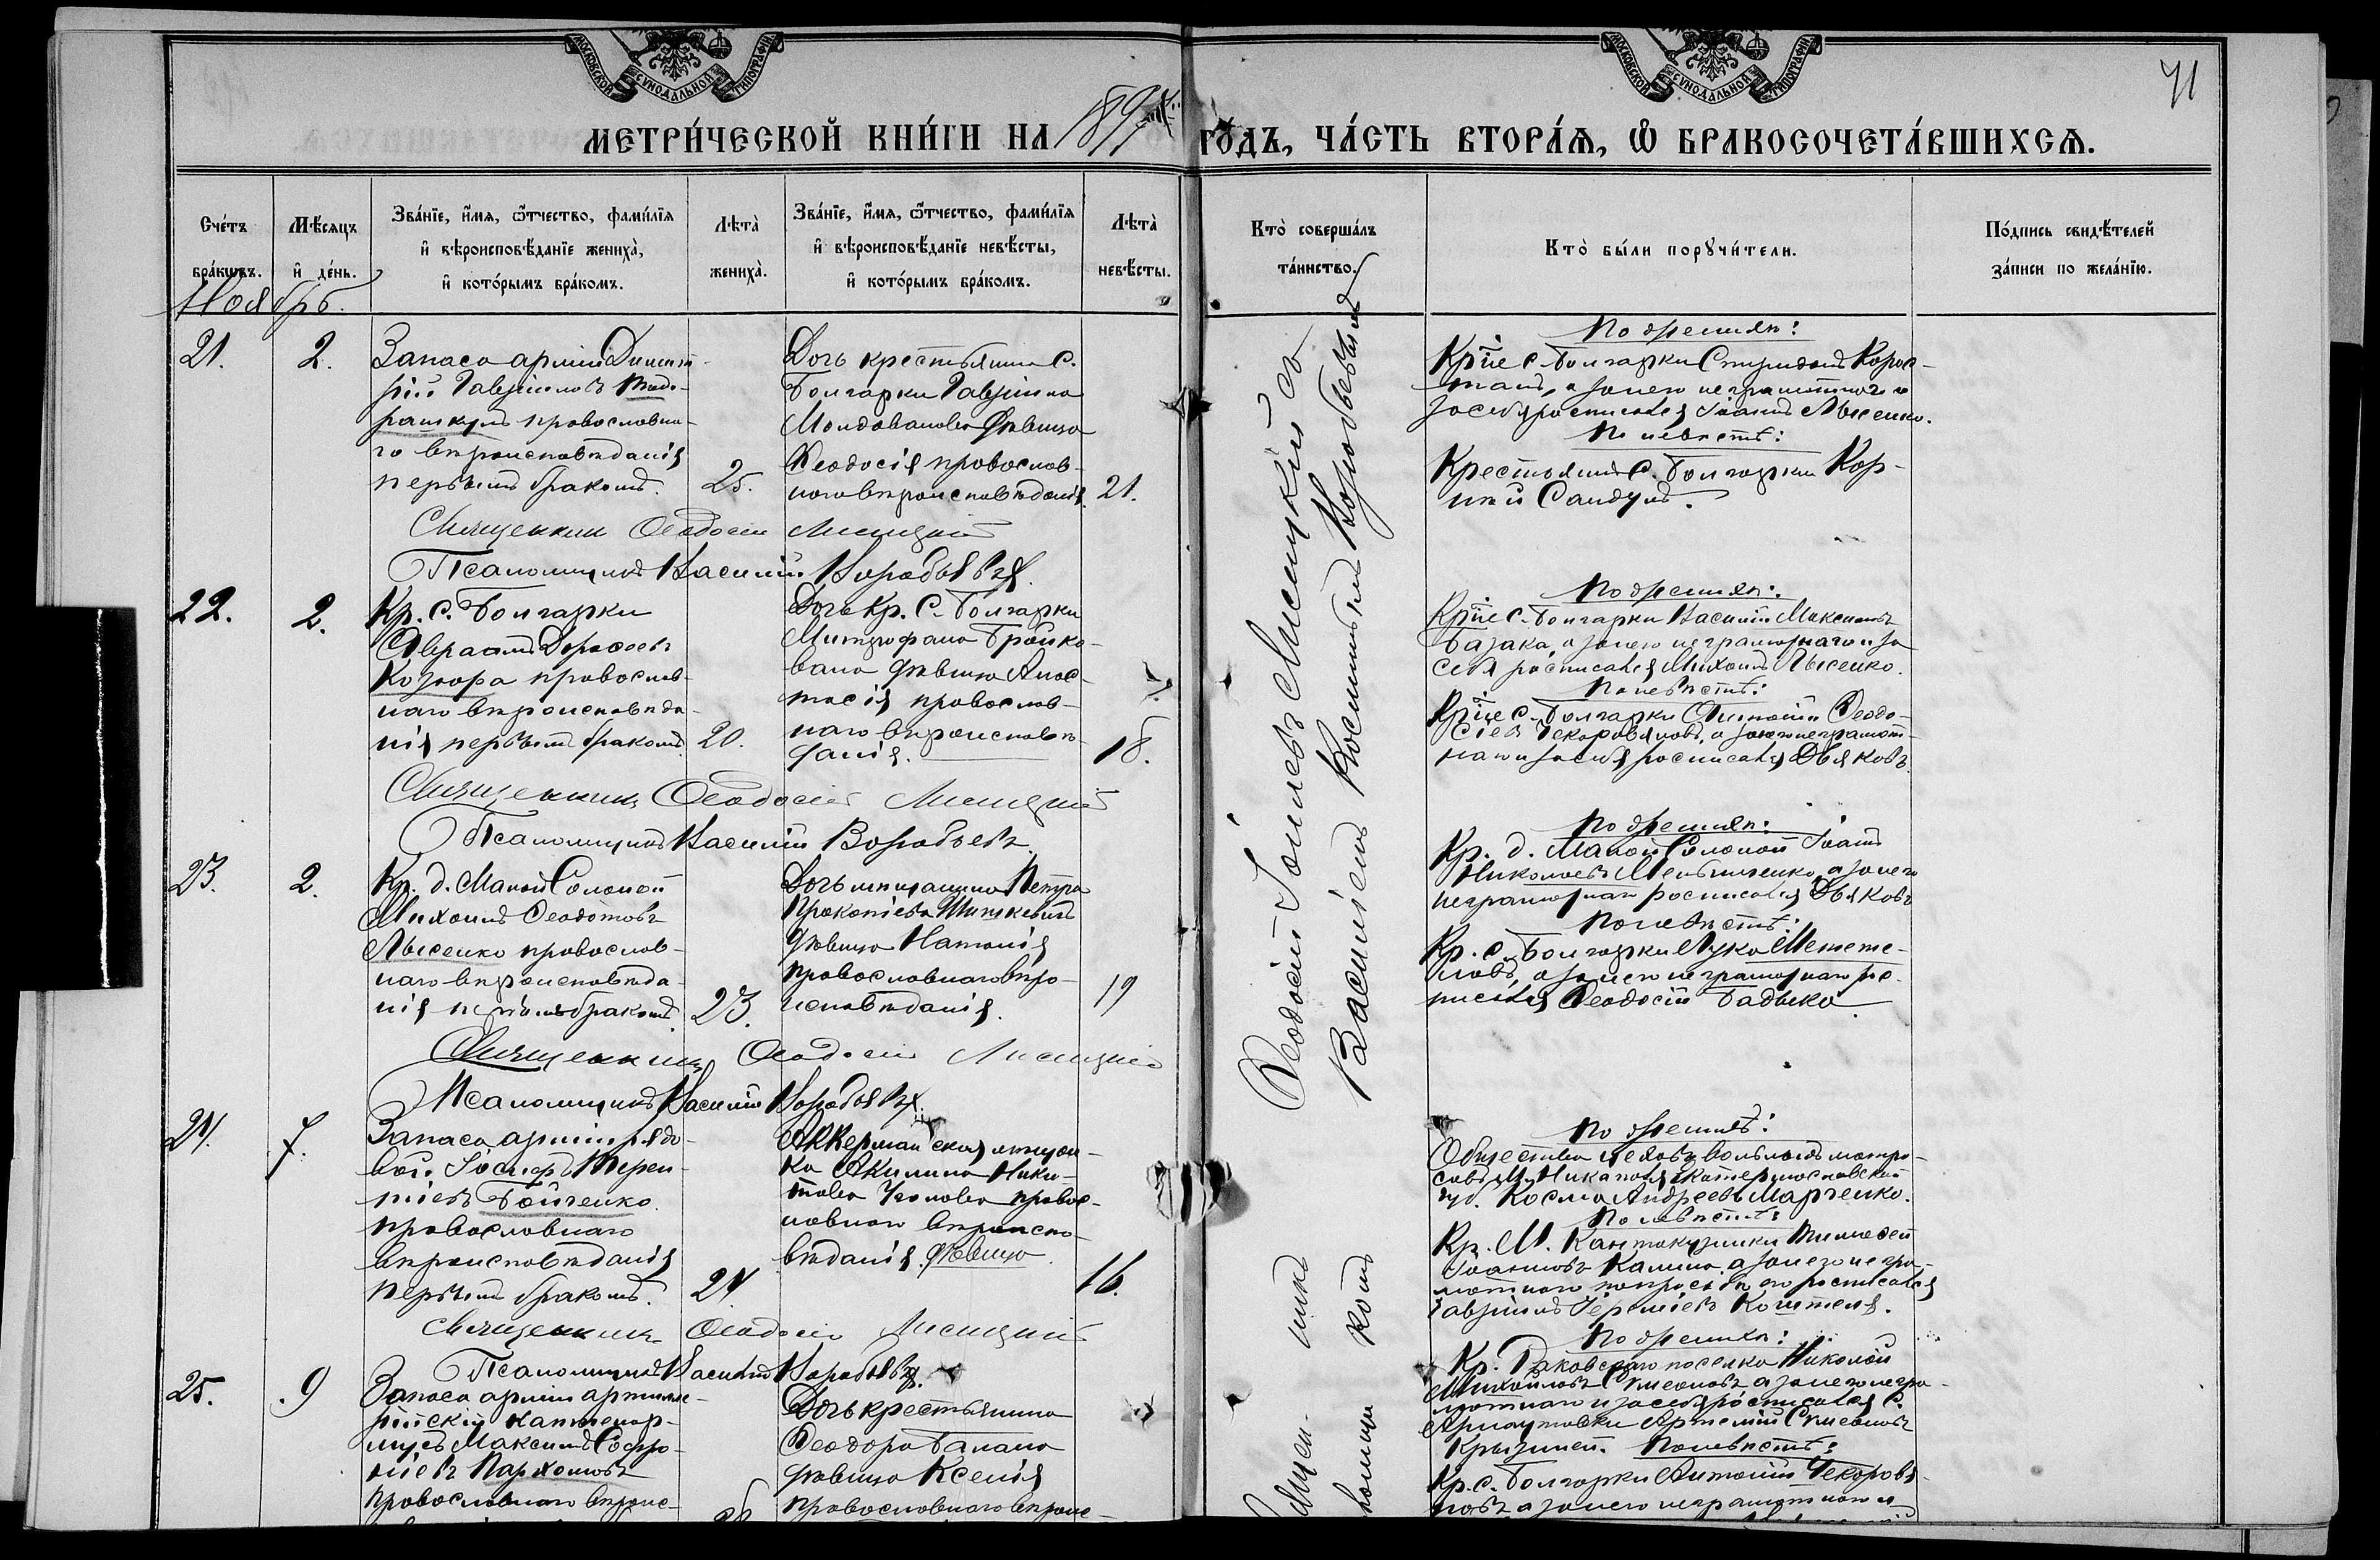 МОСКОВСКОЙ СУНОДАЛЬНОЙ ТИПОГРАФІИ
МОСКОВСКОЙ СУНОДАЛЬНОЙ ТИПОГРАФІИ
71
МЕТРИ́ЧЕСКОЙ КНИ́ГИ НА 1897 ГО́ДЪ, ЧА́СТЬ ВТОРА́Ѧ, Ѽ БРАКОСОЧЕТА́ВШИХСѦ.
Сче́тъ
бра́кѡвъ.
Мѣ́сяцъ
и҆ де́нь.
Зва́нїе, и҆́мѧ, ѻ҆́тчество, фами́лїѧ
и҆ вѣроисповѣ́данїе женихà,
и҆ кото́рымъ бра́комъ.
Лѣтà
женихà.
Зва́нїе, и҆́мѧ, ѻ҆́тчество, фами́лїѧ
и҆ вѣроисповѣ́данїе невѣ́сты,
и҆ кото́рымъ бра́комъ.
Лѣтà
невѣ́сты.
Ктò соверша́лъ
та́инство.
Ктò бы́ли порꙋчи́тели.
По́дпись свидѣ́телей
за́писи по жела́нїю.
Ноябрь.
21.
2.
Запаса арміи Димит-
рій Гавріиловъ
православна-
го вѣроисповѣданія
первымъ бракомъ.
25.
Дочь крестьянина с.
Болгарки Гавріила
Молдованова дѣвица
Ѳеодосія православ-
наго вѣроисповѣданія.
21.
Священникъ Ѳеодосій Лисицкій
Псаломщикъ Василій Воробьевъ.
По женихѣ:
Кр-не с. Болгарки
а за него неграмотнаго и
за себя росписался Іоаннъ Лысенко.
По невѣстѣ:
Крестьянинъ с. Болгарки Кор-
нѣй Сандулъ.
22.
2.
Кр. с. Болгарки
Авраамъ Дорофеевъ
Козюра православ-
наго вѣроисповѣда-
нія первымъ бракомъ.
20.
Дочь Кр. с. Болгарки
Митрофана
дѣвица Анас-
тасія православ-
наго вѣроисповѣ-
данія.
18.
Священникъ Ѳеодосій Лисицкій
Псаломщикъ Василій Воробьевъ.
По женихѣ:
Кр-не с. Болгарки Василій Максимовъ
Базака, а за него неграмотнаго и за
себя росписался Михаилъ Лысенко.
По невѣстѣ:
Кр-не с. Болгарки Антоній Ѳеодо-
сіевъ а за него неграмот-
наго и за себя росписался Дьяковъ.
23.
2.
Кр. д. Малой Соломой
Михаилъ Ѳеодотовъ
Лысенко православ-
наго вѣроисповѣда-
нія первымъ бракомъ.
23.
Дочь мѣщанина Петра
Прокопіева
дѣвица Наталія
православнаго вѣро-
исповѣданія.
19
Священникъ Ѳеодосій Лисицкій
Псаломщикъ Василій Воробьевъ.
По женихѣ:
Кр. д. Малой Соломой Іоаннъ
Николаевъ а за него
неграмотнаго росписался Дьяковъ
По невѣстѣ:
Кр. с. Болгарки Лука
а за него неграмотнаго рос-
писался Ѳеодосій Бадыка.
24.
7.
Запаса арміи рядо-
вой Іосифъ Терен-
тіевъ Бойченко
православнаго
вѣроисповѣданія
первымъ бракомъ.
24
Аккерманская мѣщан-
ка Акилина Ники-
това правос-
лавнаго вѣроиспо-
вѣданія. дѣвица
16.
Священникъ Ѳеодосій Лисицкій
Псаломщикъ Василій Воробьевъ.
По женихѣ:
Общества вольныхъ матро-
совъ м. Никополя Екатеринославской
губ. Косма Андреевъ Марченко.
По невѣстѣ:
Кр. м. Кантакузинки Тимофей
Іоанновъ Калина, а за него негра-
мотнаго по просьбѣ его росписался
Гавріилъ Іереміевъ
25.
9
Запаса арміи артилле-
рійскій каптенар-
мусъ Максимъ Софро-
ніевъ Пархомовъ
православнаго вѣроис-
Дочь крестьянина
Ѳеодора Балана
дѣвица Ксенія
православнаго вѣроис-
По женихѣ:
Кр. Раковскаго поселка Николай
Михайловъ Симеоновъ а за него негра-
мотнаго и за себя росписался с.
Арнаутовки Артемій Симеоновъ
По невѣстѣ:
Кр. с. Болгарки Антоній
а за него неграмотнаго и
Ѳеодосій Лисицкій со
Василіемъ Воробьевымъ